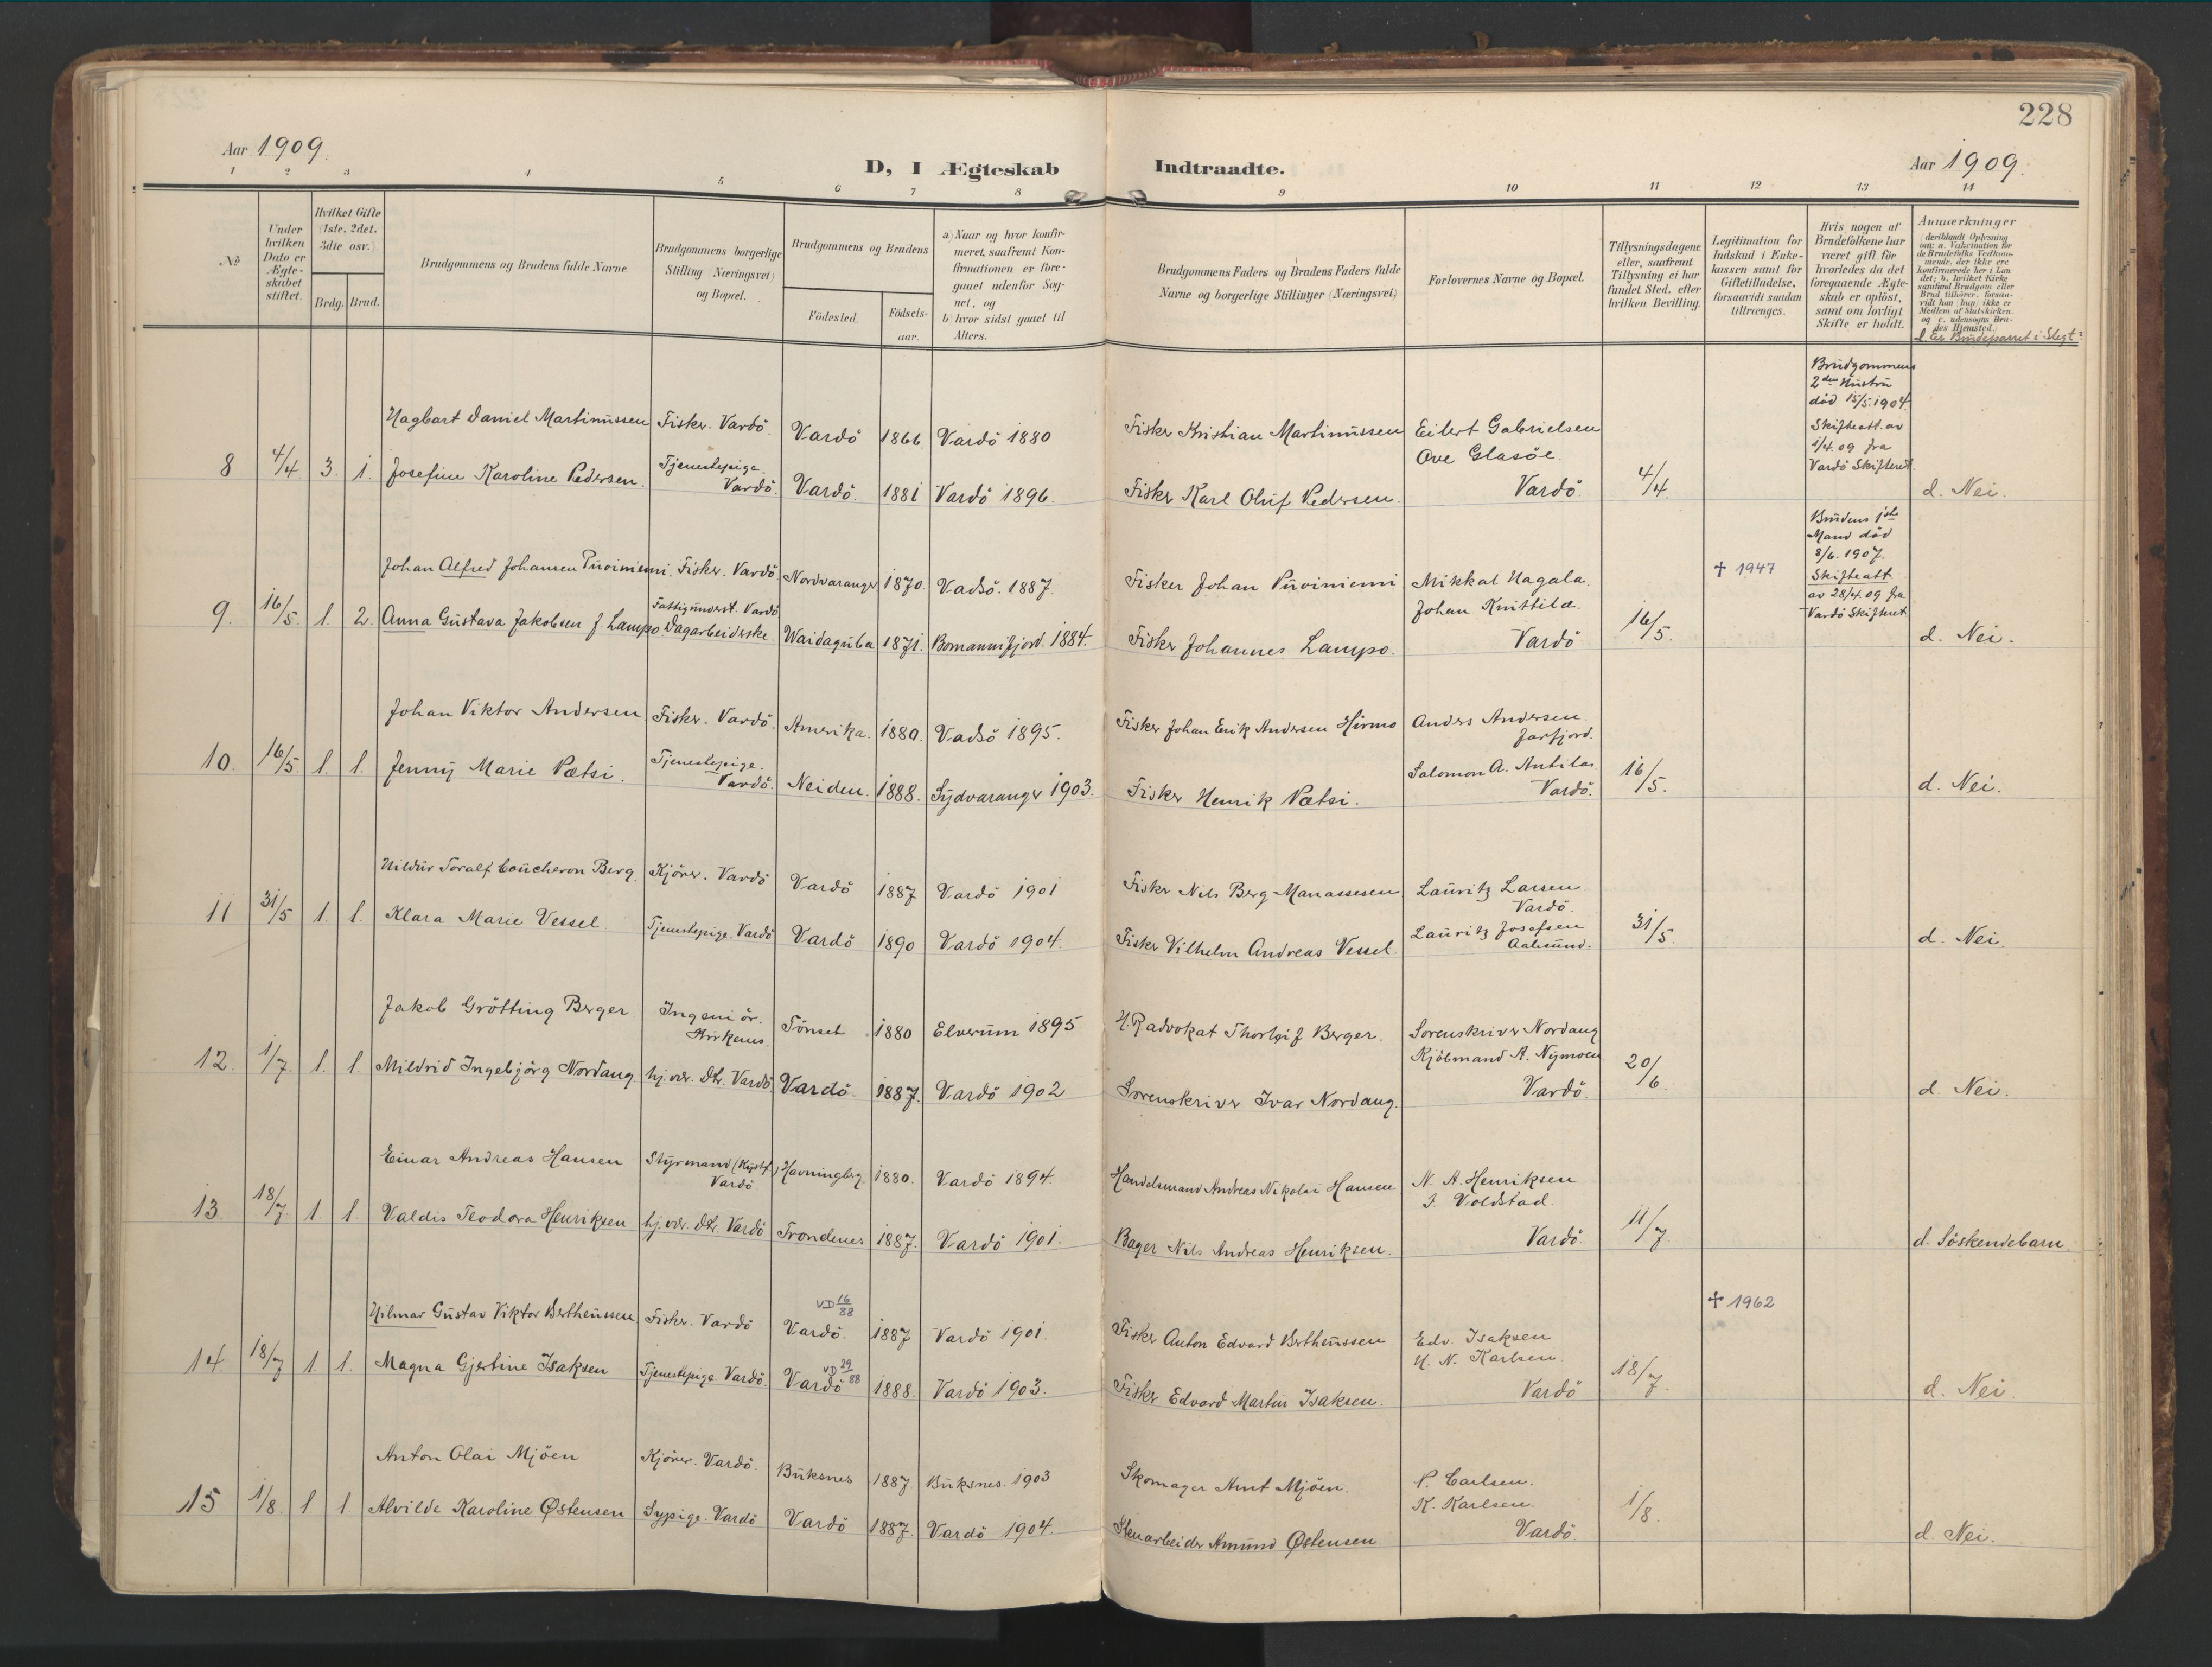 228
Aar 1909.
D, I Ægteskab Indtraadte.
Aar 1909.
1 2 3 4 5 6 7 8 9 10 11 12 13 14
No
Under
hvilken
Dato er
Ægte-
skabet
stiftet.
Hvilket Gifte
(1ste, 2det,
3die osv.)
Brdg. Brud.
Brudgommens og Brudens fulde Navne
Brudgommens borgerlige
Stilling (Næringsvei)
og Bopæl.
Brudgommens og Brudens
Födested.
Födsels-
aar.
a) Naar og hvor konfir-
meret, saafremt Kon-
firmationen er fore-
gaaet udenfor Sog-
net, og
b) hvor sidst gaaet til
Alters.
Brudgommens Faders og Brudens Faders fulde
Navne og borgerlige Stillinger (Næringsvei)
Forlovernes Navne og Bopæl.
Tillysningsdagene
eller, saafremt
Tillysning ei har
fundet Sted, efter
hvilken Bevilling.
Legitimation for
Indskud i Enke-
kassen samt for
Giftetilladelse,
forsaavidt saadan
tiltrænges.
Hvis nogen af
Brudefolkene har
været gift för
hvorledes da det
foregaaende Ægte-
skab er oplöst,
samt om lovligt
Skifte er holdt.
Anmærkninger
(deriblandt Oplysning
om: a. Vakcination for
de Brudefolks Vedkom-
mende, der ikke ere
konfirmerede her i Lan
det; b. hvilket Kirke
samfund Brudgom eller
Brud tilhörer, forsaa-
vidt han (hun) ikke er
Medlem af Statskirken,
og c. udensogns Bru-
des Hjemsted.)
d. Er Brudeparret i Slegt?
8 4/4 3. 1.
Hagbart Daniel Martinussen Fisker. Vardö. Vardö 1866 Vardö 1880
Josefine Karoline Pedersen. Tjenestepige.
Vardö. Vardö. 1881 Vardö 1896.
Fisker Kristian Martinussen
Fisker Karl Oluf Pedersen.
Eilert Gabrielsen
Ove Glasöe.
Vardö
4/4
Brudgommens
2den Hustru
död 15/5.1904.
Skifteatt. av
1/4.09 fra
Vardö Skifteret.
d. Nei.
9. 16/5. 1. 2.
Johan Alfred Johansen Puoiniemi. Fisker. Vardö. Nordvaranger 1870. Vadsö. 1887.
Anna Gustava Jakobsen f. Lampo Fattigunderst. Vardö
Dagarbeiderske. Waidaguba 1871. Bomannifjord. 1884.
Fisker Johan Puoiniemi
Fisker Johannes Lampo.
Mikkal Hagala.
Johan Knittilæ.
Vardö
16/5.
✝ 1947
Brudens 1ste
Mand död
8/6.1907.
Skifteatt.
av 28/4.09 fra
Vardö Skifteret
d. Nei.
10. 16/5. 1. 1.
Johan Viktor Andersen Fisker. Vardö. Amerika. 1880. Vadsö 1895.
Jenny Marie Pætsi. Tjenestepige.
Vardö. Neiden. 1888. Sydvaranger 1903.
Fisker Johan Erik Andersen Hirmo
Fisker Henrik Pætsi.
Anders Andersen.
Jarfjord.
Salomon A. Antilas.
Vardö.
16/5.
d. Nei.
11 31/5 1. 1.
Hildur Toralf Coucheron Berg Kjörer. Vardö Vardö 1887 Vardö 1901
Klara Marie Vessel Tjenestepige. Vardö Vardö 1890 Vardö 1904.
Fisker Nils Berg Manassesen
Fisker Vilhelm Andreas Vessel
Lauritz Larsen.
Vardö.
Lauritz Josefsen
Aalesund.
31/5.
d. Nei
12. 1/7. 1. 1.
Jakob Grötting Berger Ingeniör.
Kirkenes. Tönset 1880 Elverum 1895
Mildrid Ingebjörg Nordang hj.vær. Dtr. Vardö Vardö. 1887. Vardö 1902
H.R.advokat Thorleif Berger.
Sorenskriver Ivar Nordang.
Sorenskriver Nordang
Kjöbmand A. Nymoen
Vardö
20/6.
d. Nei.
13. 18/7. 1. 1.
Einar Andreas Hansen Styrmand (Kystf.)
Vardö Havningberg. 1880. Vardö 1894.
Valdis Teodora Henriksen hj.vær. Dtr. Vardö Trondenes 1887. Vardö 1901.
Handelsmand Andreas Nikolai Hansen
Bager Nils Andreas Henriksen.
N. A. Henriksen
J. Voldstad.
Vardö
11/7.
d. Söskendebarn.
14. 18/7 1. 1.
Hilmar Gustav Viktor Bertheussen Fisker. Vardö VD 16/88
Vardö. 1887 Vardö 1901.
Magna Gjertine Isaksen Tjenestepige. Vardö. VD 29/88
Vardö 1888. Vardö 1903.
Fisker Anton Edvard Bertheussen
Fisker Edvard Martin Isaksen.
Edv. Isaksen
H. N. Karlsen.
Vardö
18/7.
✝ 1962
d. Nei
15 1/8. 1 1.
Anton Olai Mjöen Kjörer. Vardö. Buksnes 1887. Buksnes. 1903
Alvilde Karoline Østensen Sypige. Vardö Vardö 1887. Vardö 1904.
Skomager Arnt Mjöen.
Stenarbeider Amund Østensen
P. Carlsen.
K. Karlsen.
Vardö.
1/8.
d. Nei.